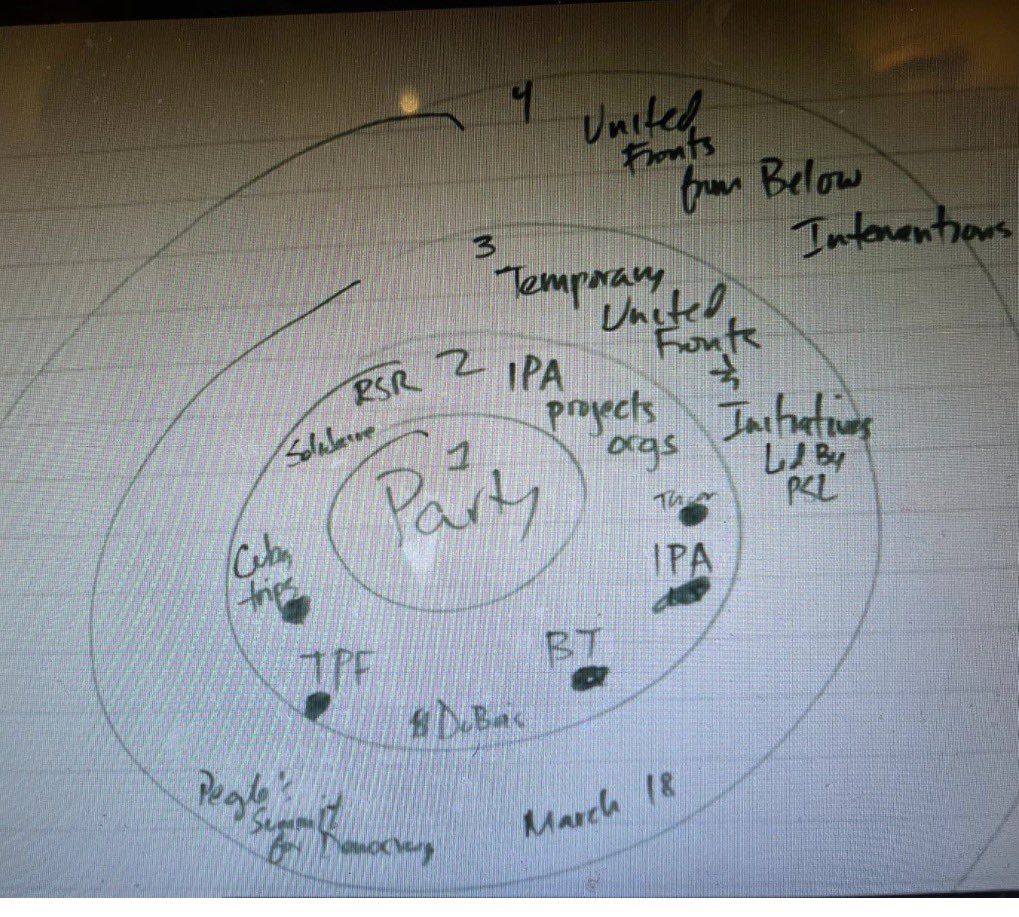 4
United
Fronts
from Below
Interventions
3
Temporary
United
Fronts
Initiatives
Led By
PSL
RSR
2
IPA
projects
orgs
1
Party
Cuba
trips
IPA
BT
TPF
DuBois
People's
Summit
for Democracy
March 18